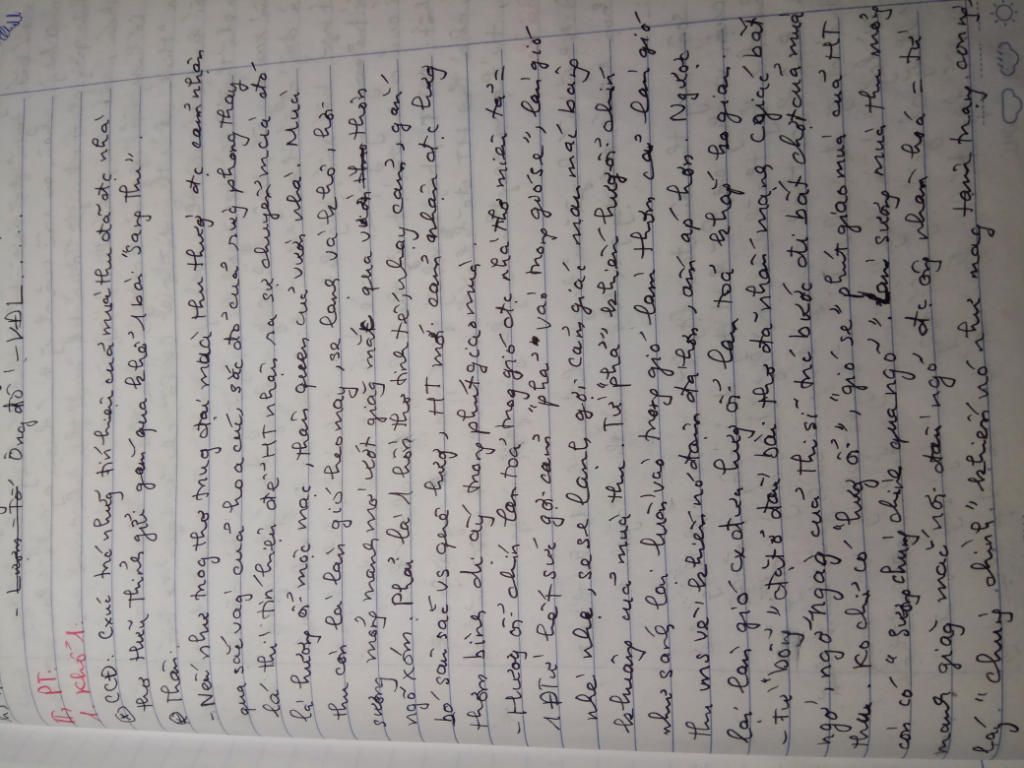 - Lượm - Tố Ông đồ - VĐL
II, PT.
1. Khổ 1.
CCĐ: Cxúc trc những tín hiệu của mùa thu đã đc nhà
thơ Hữu Thỉnh gửi gắm qua khổ 1 bài "Sang thu".
Thân.
- Nếu như trog thơ trung đại mùa thu thườg đc cảm nhận
qua sắc vàg của hoa cúc, sắc đỏ của rừng phong thay
lá thì tín hiệu để HT nhận ra sự chuyển mùa đó
là hương ổi mộc mạc, thân quen của vườn nhà. Mùa
thu còn là làn gió heo may, se lạng và khô, hơi
sương mỏng mang mơ vớt giăng mắc qua thôn
ngõ xóm. Phải là 1 hồn thơ tinh tế, nhạy cảm, gắn
bó sâu sắc vs quê hg, HT mới cảm nhận đc thu
thơm bình dị ấy trong phút giao mùa.
- Hương ổi chín lan toả trog gió đc nhà thơ miêu tả =
1 ĐTừ hết sức gợi cảm "phả" vào trong gió se", làn gió
nhè nhẹ, se se lạnh, gợi cảm giác man mác bâng
khuâng của mùa thu. Từ "phả" khiến hương ổi chín
như sánh lại luồn vào trong gió làm thơm cả làn gió
thu mơ về khiến nó đậm đà hơn, ấm áp hơn. Ngược
lại làn gió cx đưa hương ổi lan toả khắp ko gian.
- Từ "bỗng" đặt ở đầu bài thơ đã nhấn mạng cgiác bất
ngờ, ngỡ ngàg của thi sĩ trc bước đi bất chợt của mùa
thu. Ko chỉ có "hương ổi", "gió se" phút giao mùa của HT
còn có "sương chùng chình qua ngõ". Làn sương mùa thu mỏng
manh, giăg mắc nơi đầu ngõ, đc ôg nhân hoá = từ
láy "chùng chình" khiến nó như mag tâm trạg cong